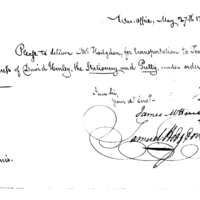 War-Office, May, 27th 17
Please to deliver Mr Hodgdon, for transportation to
of David Henley, the Stationery and Putty, under order
I am Sir,
Your ob. Serv.
James McHenry
Samuel Hodgdon